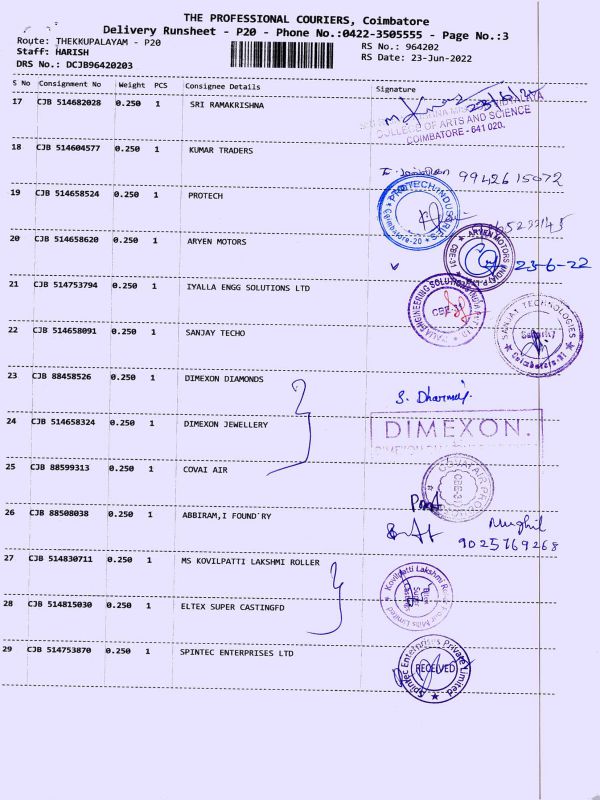 THE PROFESSIONAL COURIERS, Coimbatore
Delivery Runsheet - P20 - Phone No.:0422-3505555 - Page No.:3
Route: THEKKUPALAYAM - P20
RS No.: 964202
Staff: HARISH
RS Date: 23-Jun-2022
DRS No.: DCJB96420203
S No Consignment No Weight PCS Consignee Details Signature
17 CJB 514682028 0.250 1 SRI RAMAKRISHNA
COLLEGE OF ARTS AND SCIENCE
COIMBATORE - 641 020.
18 CJB 514604577 0.250 1 KUMAR TRADERS
9942615072
19 CJB 514658524 0.250 1 PROTECH
PROTECH INDUSTRIES
Coimbatore-20
20 CJB 514658620 0.250 1 ARYEN MOTORS
ARYEN MOTORS
CBE-31
23-6-22
21 CJB 514753794 0.250 1 IYALLA ENGG SOLUTIONS LTD
ENGINEERING SOLUTIONS
CBE-31
22 CJB 514658091 0.250 1 SANJAY TECHO
SANJAY TECHNOLOGIES
23 CJB 88458526 0.250 1 DIMEXON DIAMONDS
24 CJB 514658324 0.250 1 DIMEXON JEWELLERY
DIMEXON.
25 CJB 88599313 0.250 1 COVAI AIR
COVAI AIR
CBE-31
26 CJB 88508038 0.250 1 ABBIRAM,I FOUND'RY
9025769268
27 CJB 514830711 0.250 1 MS KOVILPATTI LAKSHMI ROLLER
Kovilpatti Lakshmi
Flour Mills Limited
28 CJB 514815030 0.250 1 ELTEX SUPER CASTINGFD
29 CJB 514753870 0.250 1 SPINTEC ENTERPRISES LTD
Spintec Enterprises Private Limited
RECEIVED